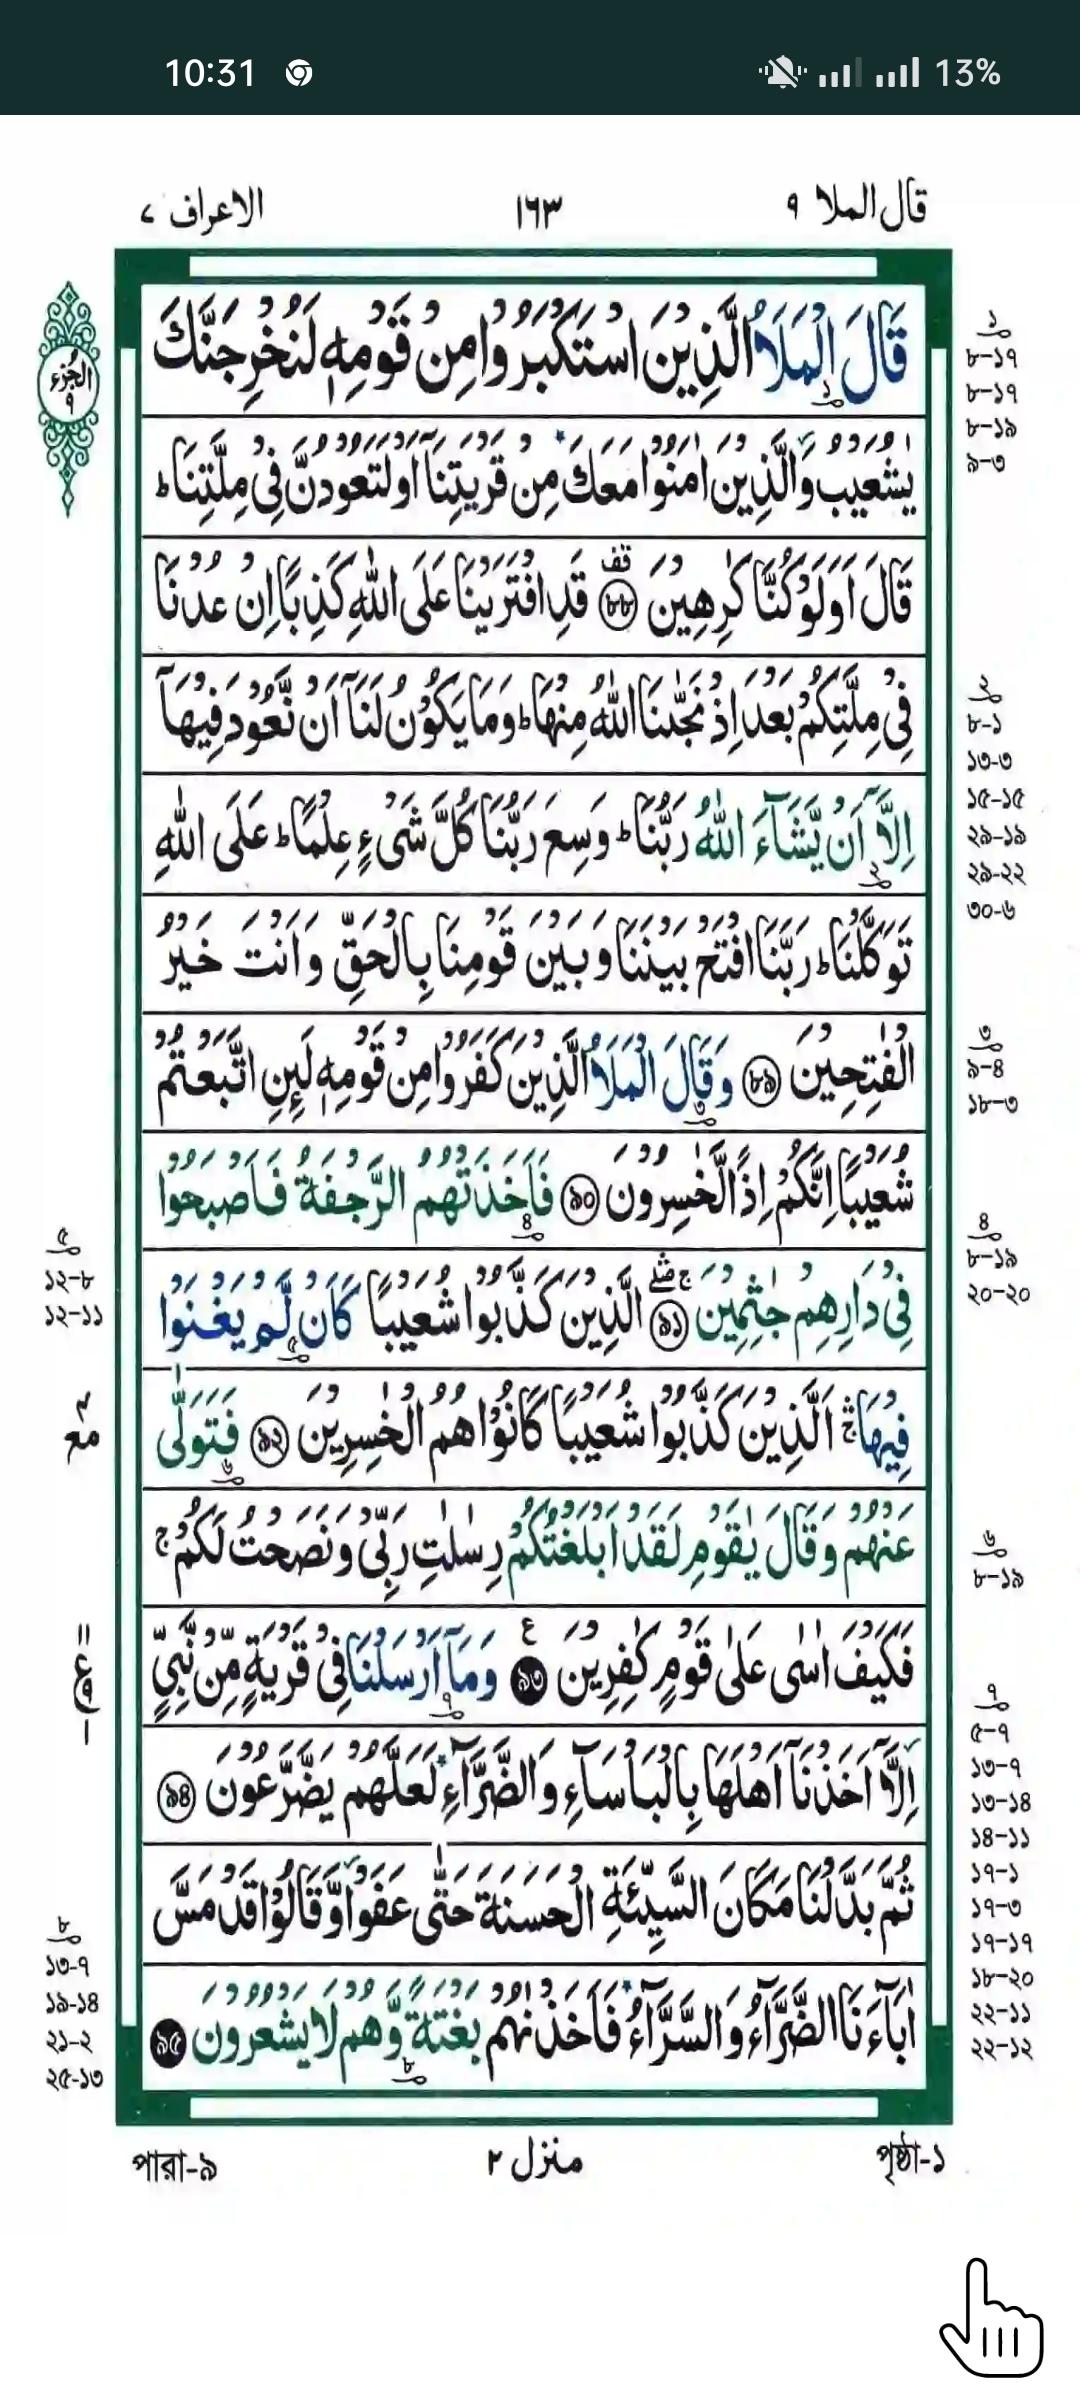 10:31
13%
قال الملا ٩
١٦٣
الاعراف ٧
الجزء ٩
قَالَ الْمَلَاُ الَّذِيْنَ اسْتَكْبَرُوْا مِنْ قَوْمِهٖ لَنُخْرِجَنَّكَ
يٰشُعَيْبُ وَالَّذِيْنَ اٰمَنُوْا مَعَكَ مِنْ قَرْيَتِنَآ اَوْ لَتَعُوْدُنَّ فِيْ مِلَّتِنَا ؕ
قَالَ اَوَلَوْ كُنَّا كٰرِهِيْنَ ৮৮ قف قَدِ افْتَرَيْنَا عَلَى اللّٰهِ كَذِبًا اِنْ عُدْنَا
فِيْ مِلَّتِكُمْ بَعْدَ اِذْ نَجّٰىنَا اللّٰهُ مِنْهَا ؕ وَمَا يَكُوْنُ لَنَآ اَنْ نَّعُوْدَ فِيْهَآ
اِلَّآ اَنْ يَّشَآءَ اللّٰهُ رَبُّنَا ؕ وَسِعَ رَبُّنَا كُلَّ شَيْءٍ عِلْمًا ؕ عَلَى اللّٰهِ
تَوَكَّلْنَا ؕ رَبَّنَا افْتَحْ بَيْنَنَا وَبَيْنَ قَوْمِنَا بِالْحَقِّ وَاَنْتَ خَيْرُ
الْفٰتِحِيْنَ ৮৯ وَقَالَ الْمَلَاُ الَّذِيْنَ كَفَرُوْا مِنْ قَوْمِهٖ لَئِنِ اتَّبَعْتُمْ
شُعَيْبًا اِنَّكُمْ اِذًا لَّخٰسِرُوْنَ ৯০ فَاَخَذَتْهُمُ الرَّجْفَةُ فَاَصْبَحُوْا
فِيْ دَارِهِمْ جٰثِمِيْنَ ৯১ ج صلے الَّذِيْنَ كَذَّبُوْا شُعَيْبًا كَاَنْ لَّمْ يَغْنَوْا
فِيْهَا ۛۚ اَلَّذِيْنَ كَذَّبُوْا شُعَيْبًا كَانُوْا هُمُ الْخٰسِرِيْنَ ৯২ فَتَوَلّٰى
عَنْهُمْ وَقَالَ يٰقَوْمِ لَقَدْ اَبْلَغْتُكُمْ رِسٰلٰتِ رَبِّيْ وَنَصَحْتُ لَكُمْ ۚ
فَكَيْفَ اٰسٰى عَلٰى قَوْمٍ كٰفِرِيْنَ ৯৩ ع وَمَآ اَرْسَلْنَا فِيْ قَرْيَةٍ مِّنْ نَّبِيٍّ
اِلَّآ اَخَذْنَآ اَهْلَهَا بِالْبَاْسَآءِ وَالضَّرَّآءِ لَعَلَّهُمْ يَضَّرَّعُوْنَ ৯৪
ثُمَّ بَدَّلْنَا مَكَانَ السَّيِّئَةِ الْحَسَنَةَ حَتّٰى عَفَوْا وَّقَالُوْا قَدْ مَسَّ
اٰبَآءَنَا الضَّرَّآءُ وَالسَّرَّآءُ فَاَخَذْنٰهُمْ بَغْتَةً وَّهُمْ لَا يَشْعُرُوْنَ ৯৫
১
৮-১৭
৮-১৭
৮-১৯
৯-৩
২
৮-১
১৩-৩
১৫-১৫
২৯-১৯
২৯-২২
৩০-৬
৩
৯-৪
১৮-৩
৪
৮-১৯
২০-২০
৬
৮-১৯
৭
৫-৭
১৩-৭
১৩-১৪
১৪-১১
১৭-১
১৭-৩
১৭-১৭
১৮-২০
২২-১১
২২-১২
৫
১২-৮
১২-১১
مع
ع
৮
১৩-৭
১৯-১৪
২১-২
২৫-১৩
পারা-৯
منزل ٢
পৃষ্ঠা-১